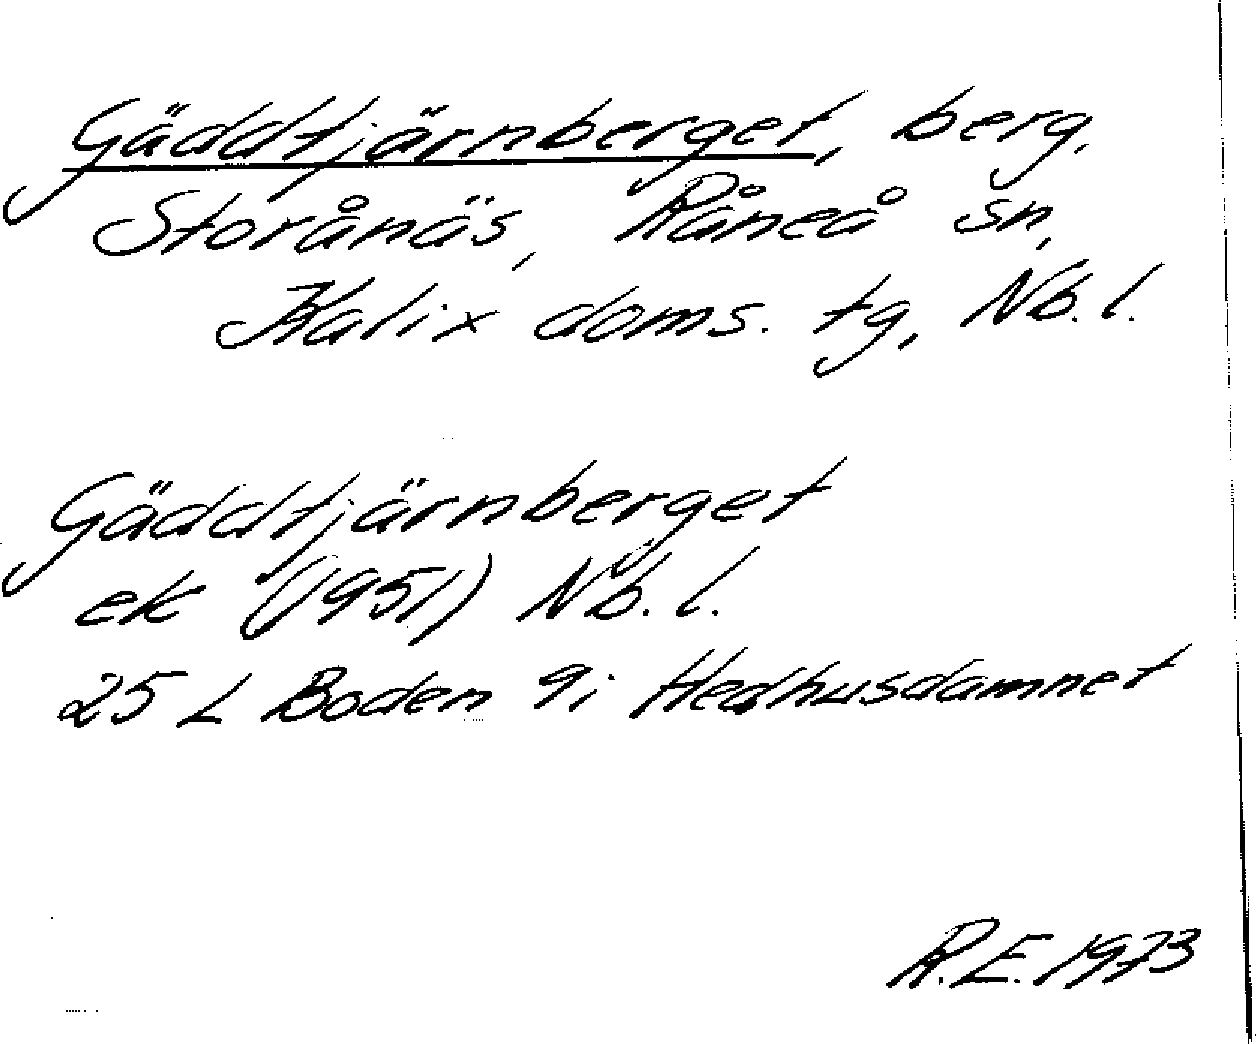 Gäddtjärnberget, berg,
Storånäs, Råneå sn,
Kalix doms. tg, Nb. l.
Gäddtjärnberget
ek (1951) Nb. l.
25 L Boden 9i Hedhusdamnet
R.E. 1973